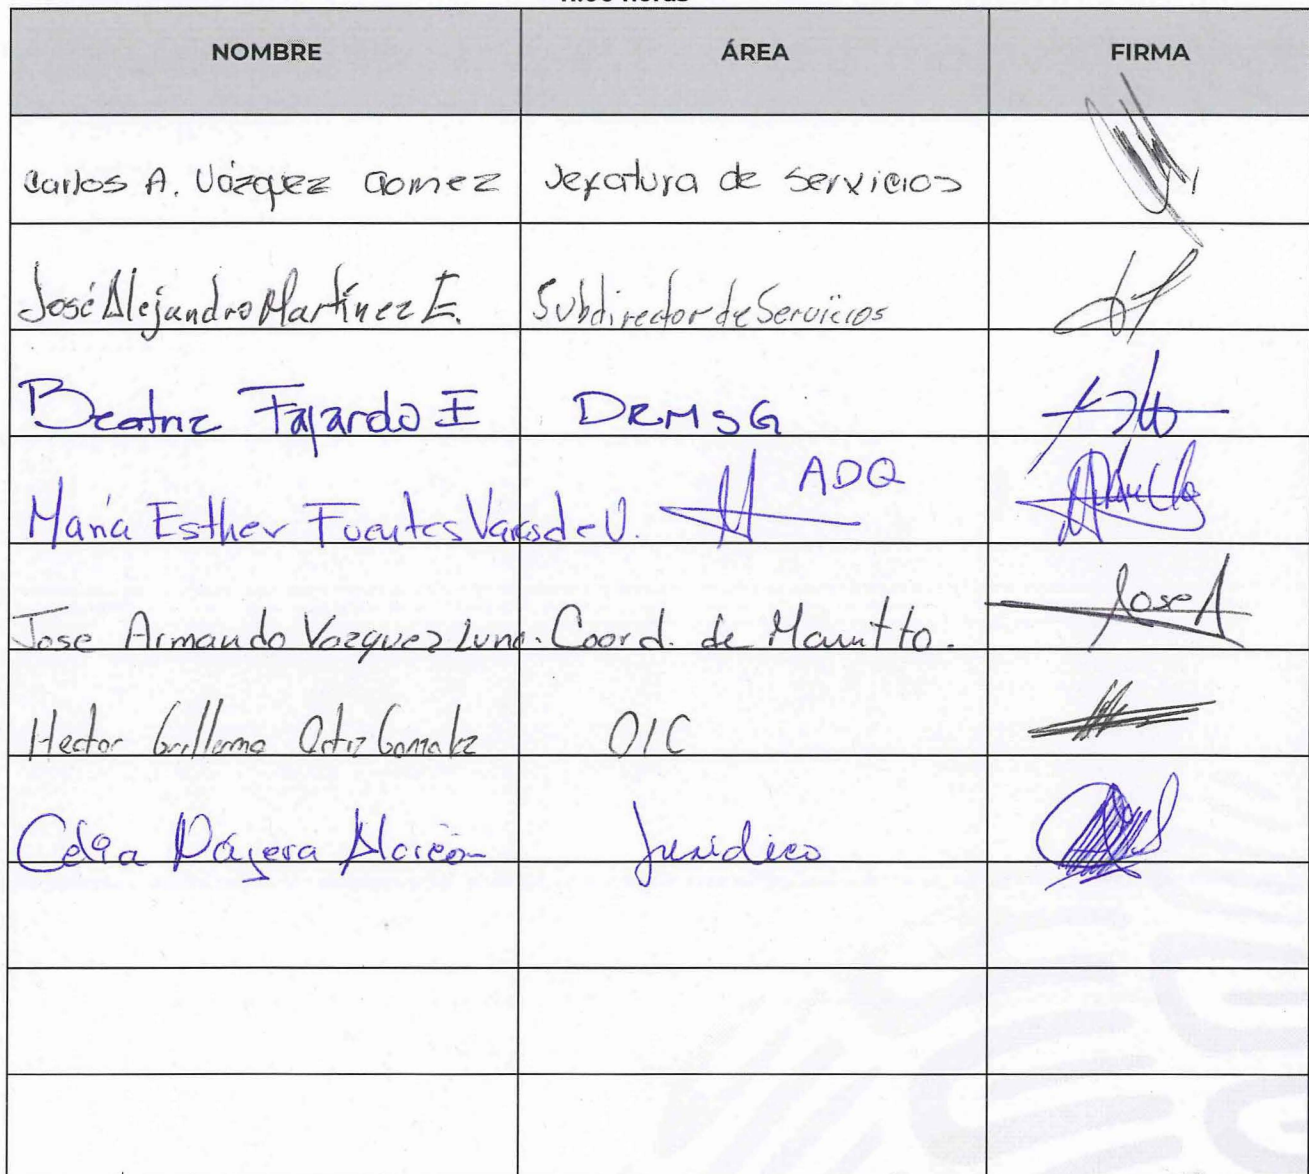 NOMBRE ÁREA FIRMA
Carlos A. Vázquez Gomez Jefatura de servicios
José Alejandro Martínez E. Subdirector de Servicios
Beatriz Fajardo E DRMSG
María Esther Fuentes V. ADQ
Jose Armando Vazquez Luna. Coord. de Mantto. Jose A
Hector Guillermo Ortiz Gonzalez OIC
Celia Alarcón Jurídico